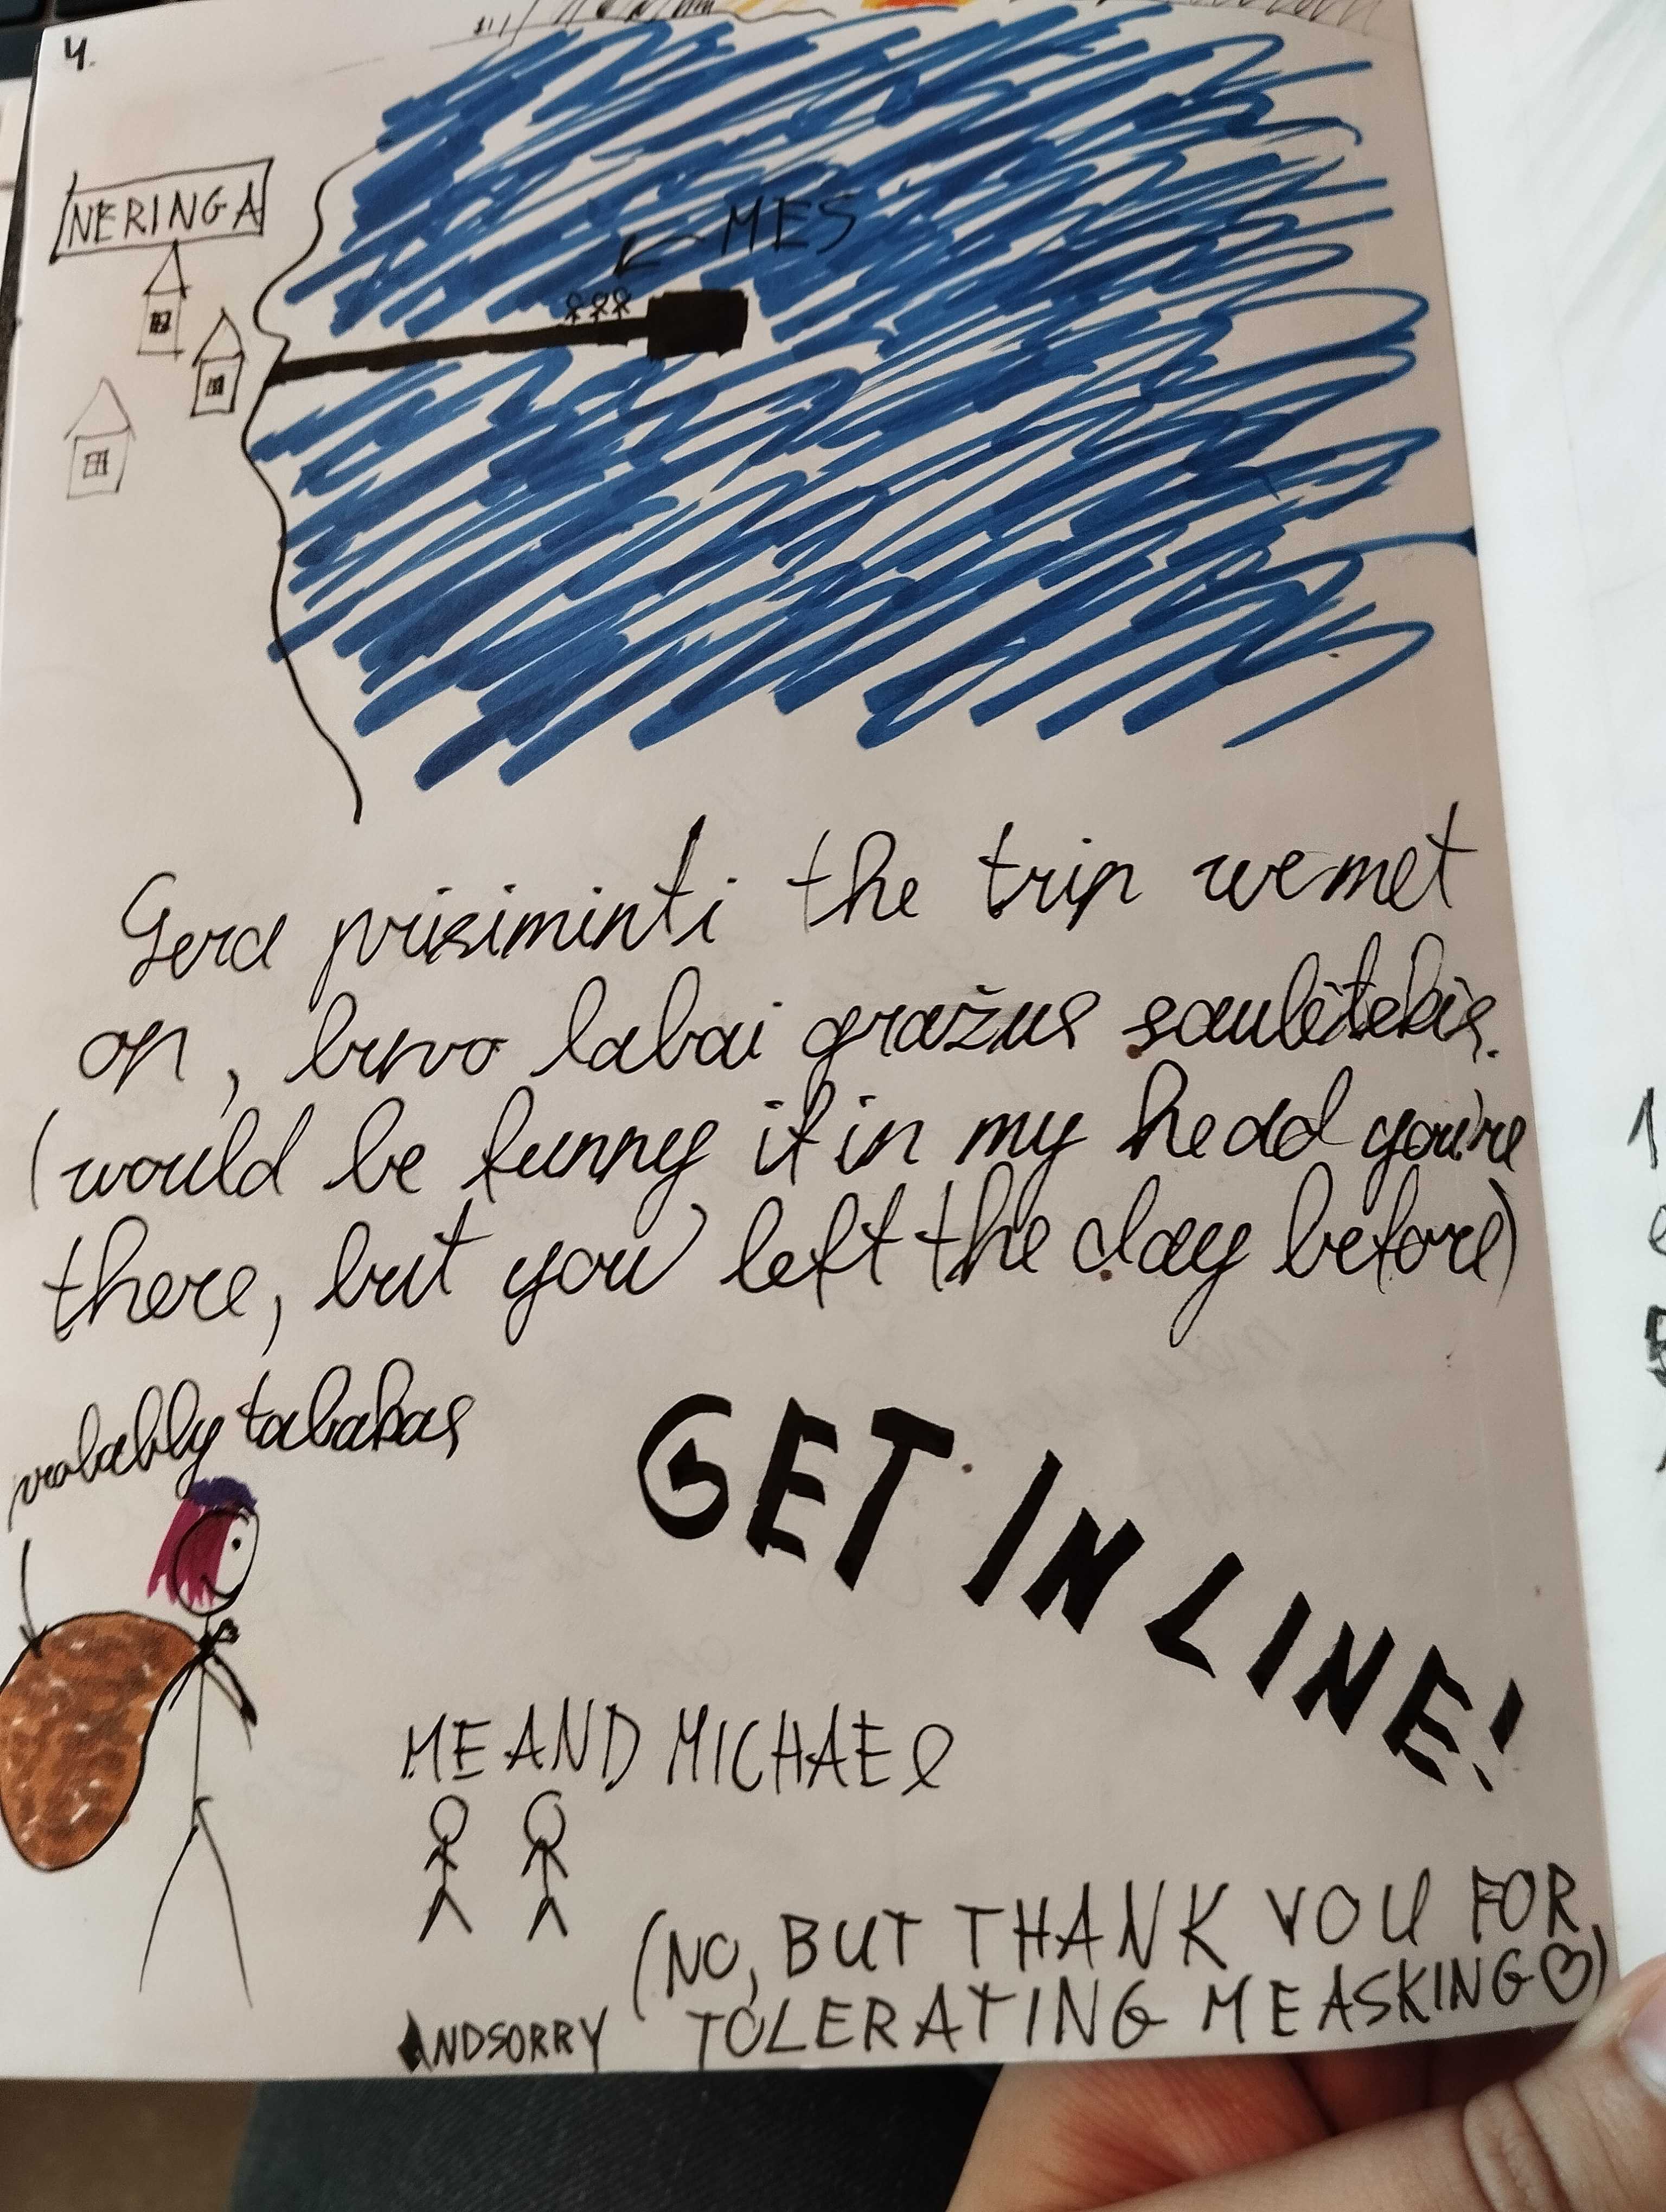 4.
NERINGA
MES
Gera prisiminti the trip we met
on, buvo labai gražus saulėtekis.
(would be funny if in my head you're
there, but you left the day before)
probably tabakas
GET IN LINE!
ME AND MICHAEL
(NO, BUT THANK YOU FOR
TOLERATING ME ASKING♡)
AND SORRY
1
5